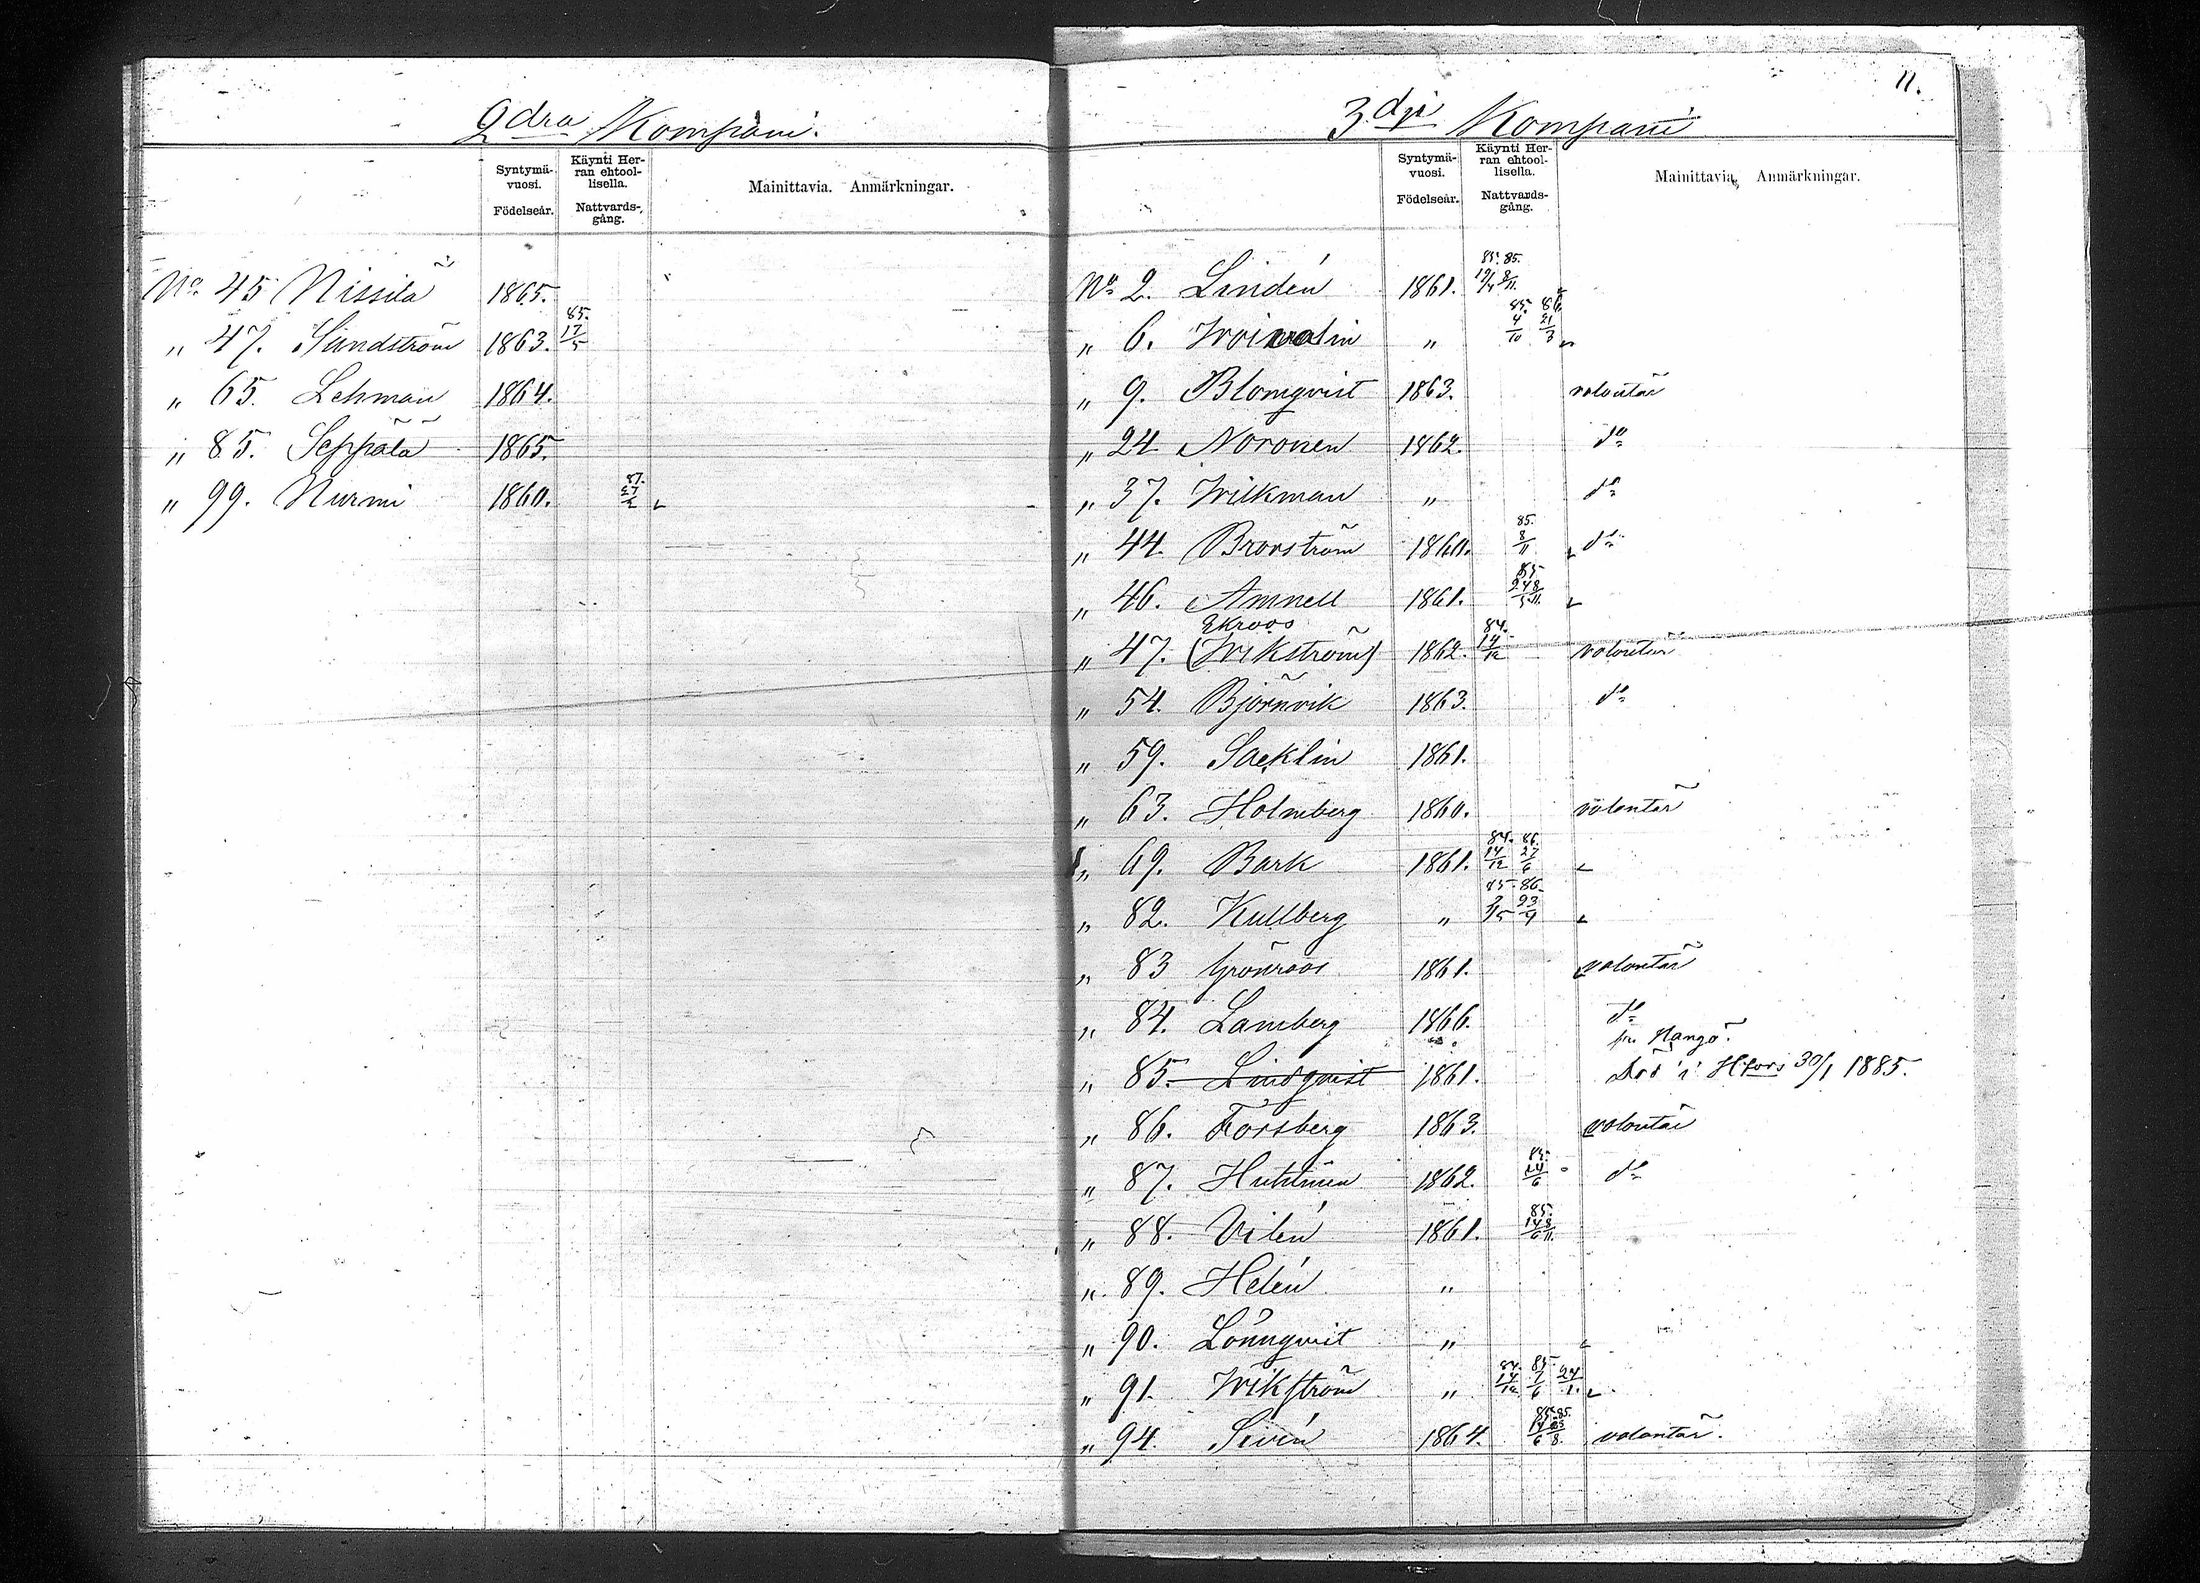 2dra Kompani.
Syntymävuosi. Födelseår. Käynti Herran ehtoollisella. Nattvardsgång. Mainittavia. Anmärkningar.
No. 45 Nissilä 1865.
„ 47. Sundström 1863. 85. 17/5
„ 65. Lehman 1864.
„ 85. Seppälä 1865.
„ 99. Nurmi 1860. 87.
11.
3dje Kompani
Syntymävuosi. Födelseår. Käynti Herran ehtoollisella. Nattvardsgång. Mainittavia. Anmärkningar.
No 2. Lindén 1861. 85. 85.
„ 6. Woivalin „ 85. 4/10 86. 21/3
„ 9. Blomqvist 1863. volontär
„ 24 Noronen 1862. do
„ 37. Wilkman „ do
„ 44. Brorström 1860. 85. 8/11 do
„ 46. Amnell 1861. 85.
Ekroos
„ 47. (Wikström) 1862. 84. 14/12 volontär
„ 54. Björnvik 1863. do
„ 59. Sacklin 1861.
„ 63. Holmberg 1860. volontär
„ 69. Bark 1861. 84. 14/12 86. 27/6
„ 82. Kullberg „ 85. 3/5 86. 23/4
„ 83 Grönroos 1861. volontär
„ 84. Lamberg 1866. do
frn Hangö.
„ 85. Lindqvist 1861. Död i Hfors 30/1 1885.
„ 86. Forsberg 1863. volontär
„ 87. Huhtinen 1862. 85. 14/6 do
„ 88. Vilén 1861. 85. 14/6 8/11
„ 89. Helén „
„ 90. Lönnqvist „
„ 91. Wikström „ 84. 14/12 85. 7/6 24/1.
„ 94. Sivén 1864. 85. 85. 14/6 volontär.